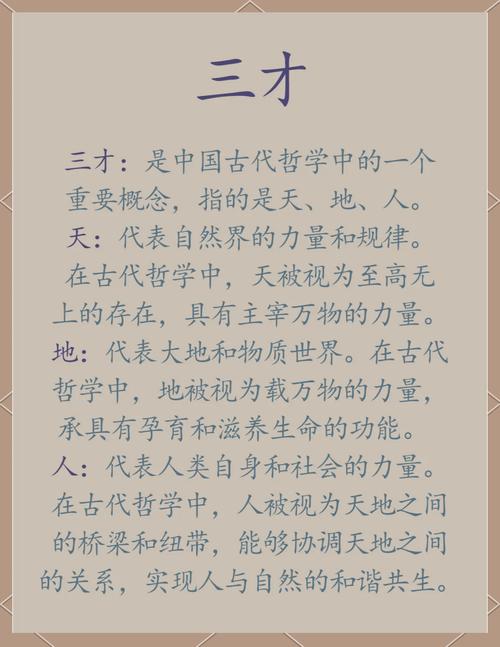 三才
三才：是中国古代哲学中的一个
重要概念，指的是天、地、人。
天：代表自然界的力量和规律。
在古代哲学中，天被视为至高无
上的存在，具有主宰万物的力量。
地：代表大地和物质世界。在古代
哲学中，地被视为载万物的力量，
承具有孕育和滋养生命的功能。
人：代表人类自身和社会的力量。
在古代哲学中，人被视为天地之间
的桥梁和纽带，能够协调天地之间
的关系，实现人与自然的和谐共生。